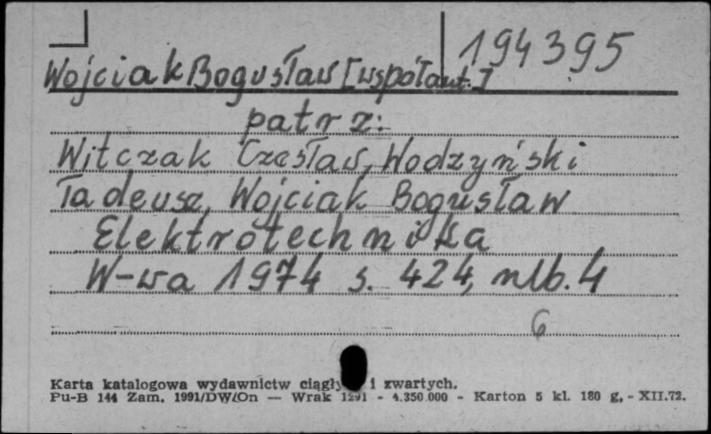 194395
Wojciak Bogusław [współaut.]
patrz:
Witczak Czesław, Wodzyński
Tadeusz, Wojciak Bogusław
Elektrotechnika
W-wa 1974 s. 424, nlb. 4
6
Karta katalogowa wydawnictw ciągły i zwartych.
Pu-B 144 Zam. 1991/DW/On — Wrak 1291 - 4.350 000 - Karton 5 kl. 180 g. - XII.72.